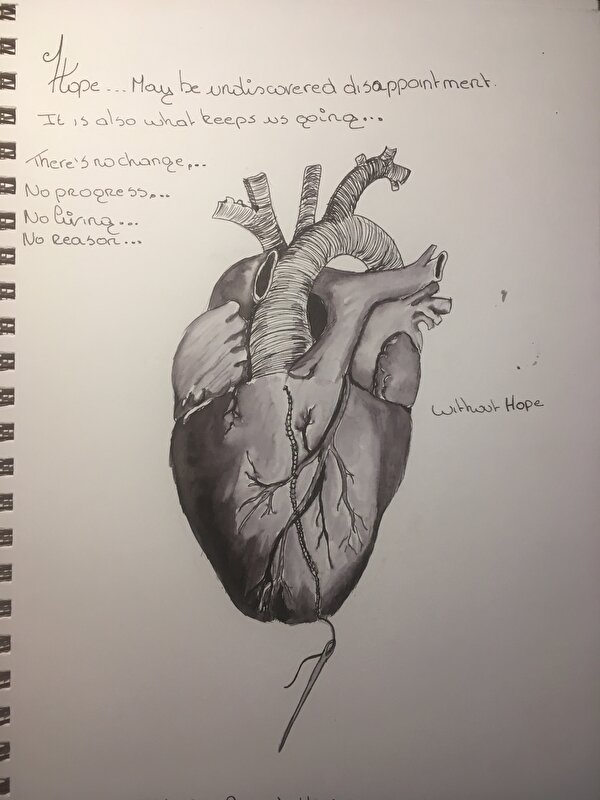 Hope... May be undiscovered disappointment.
It is also what keeps us going...
There's no change,..
No progress...
No living...
No reason...
without Hope